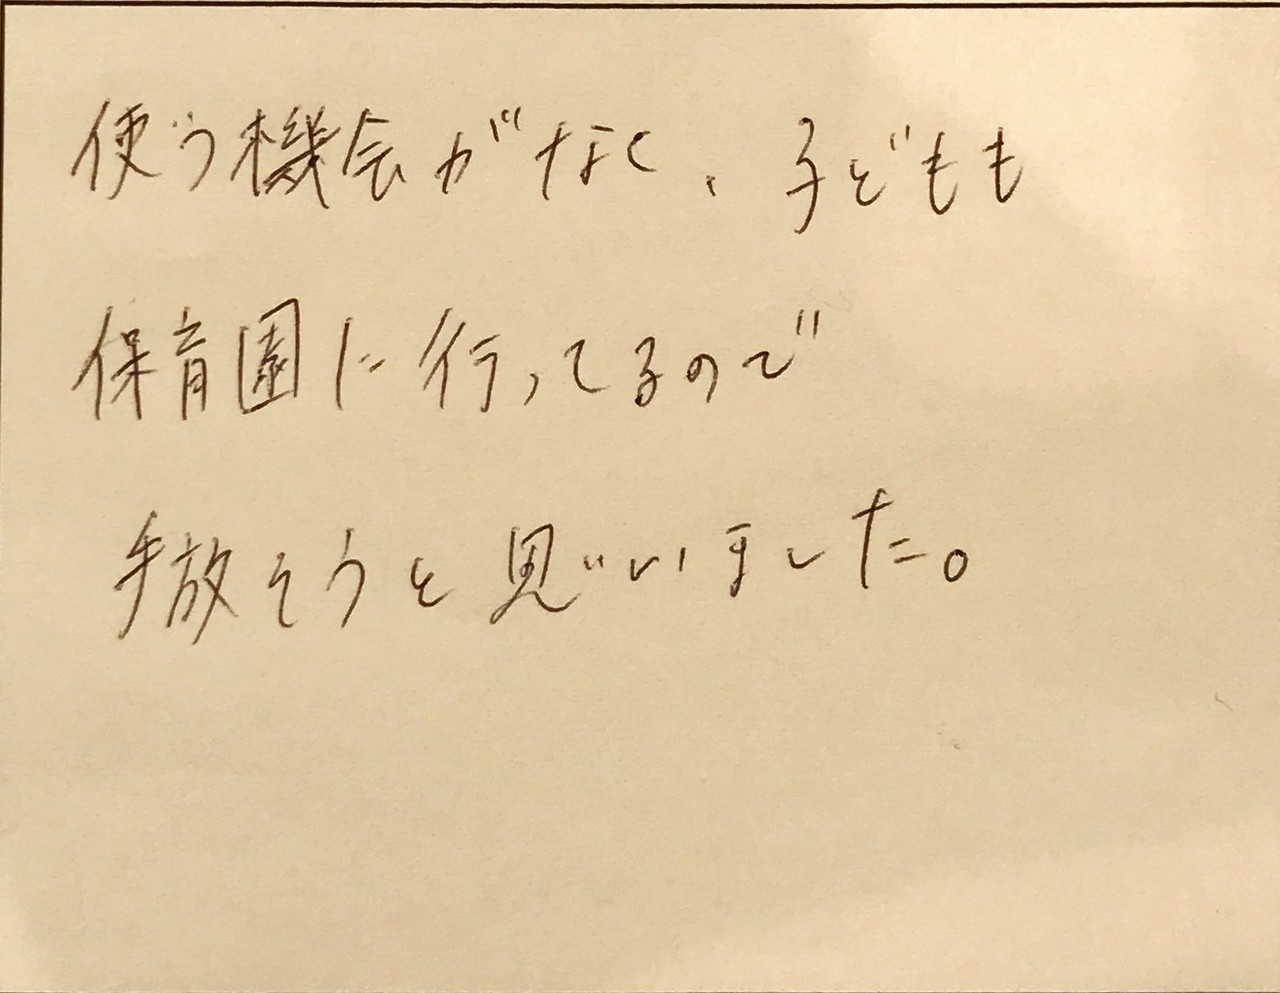 使う機会がなく、子どもも
保育園に行ってるので
手放そうと思いました。